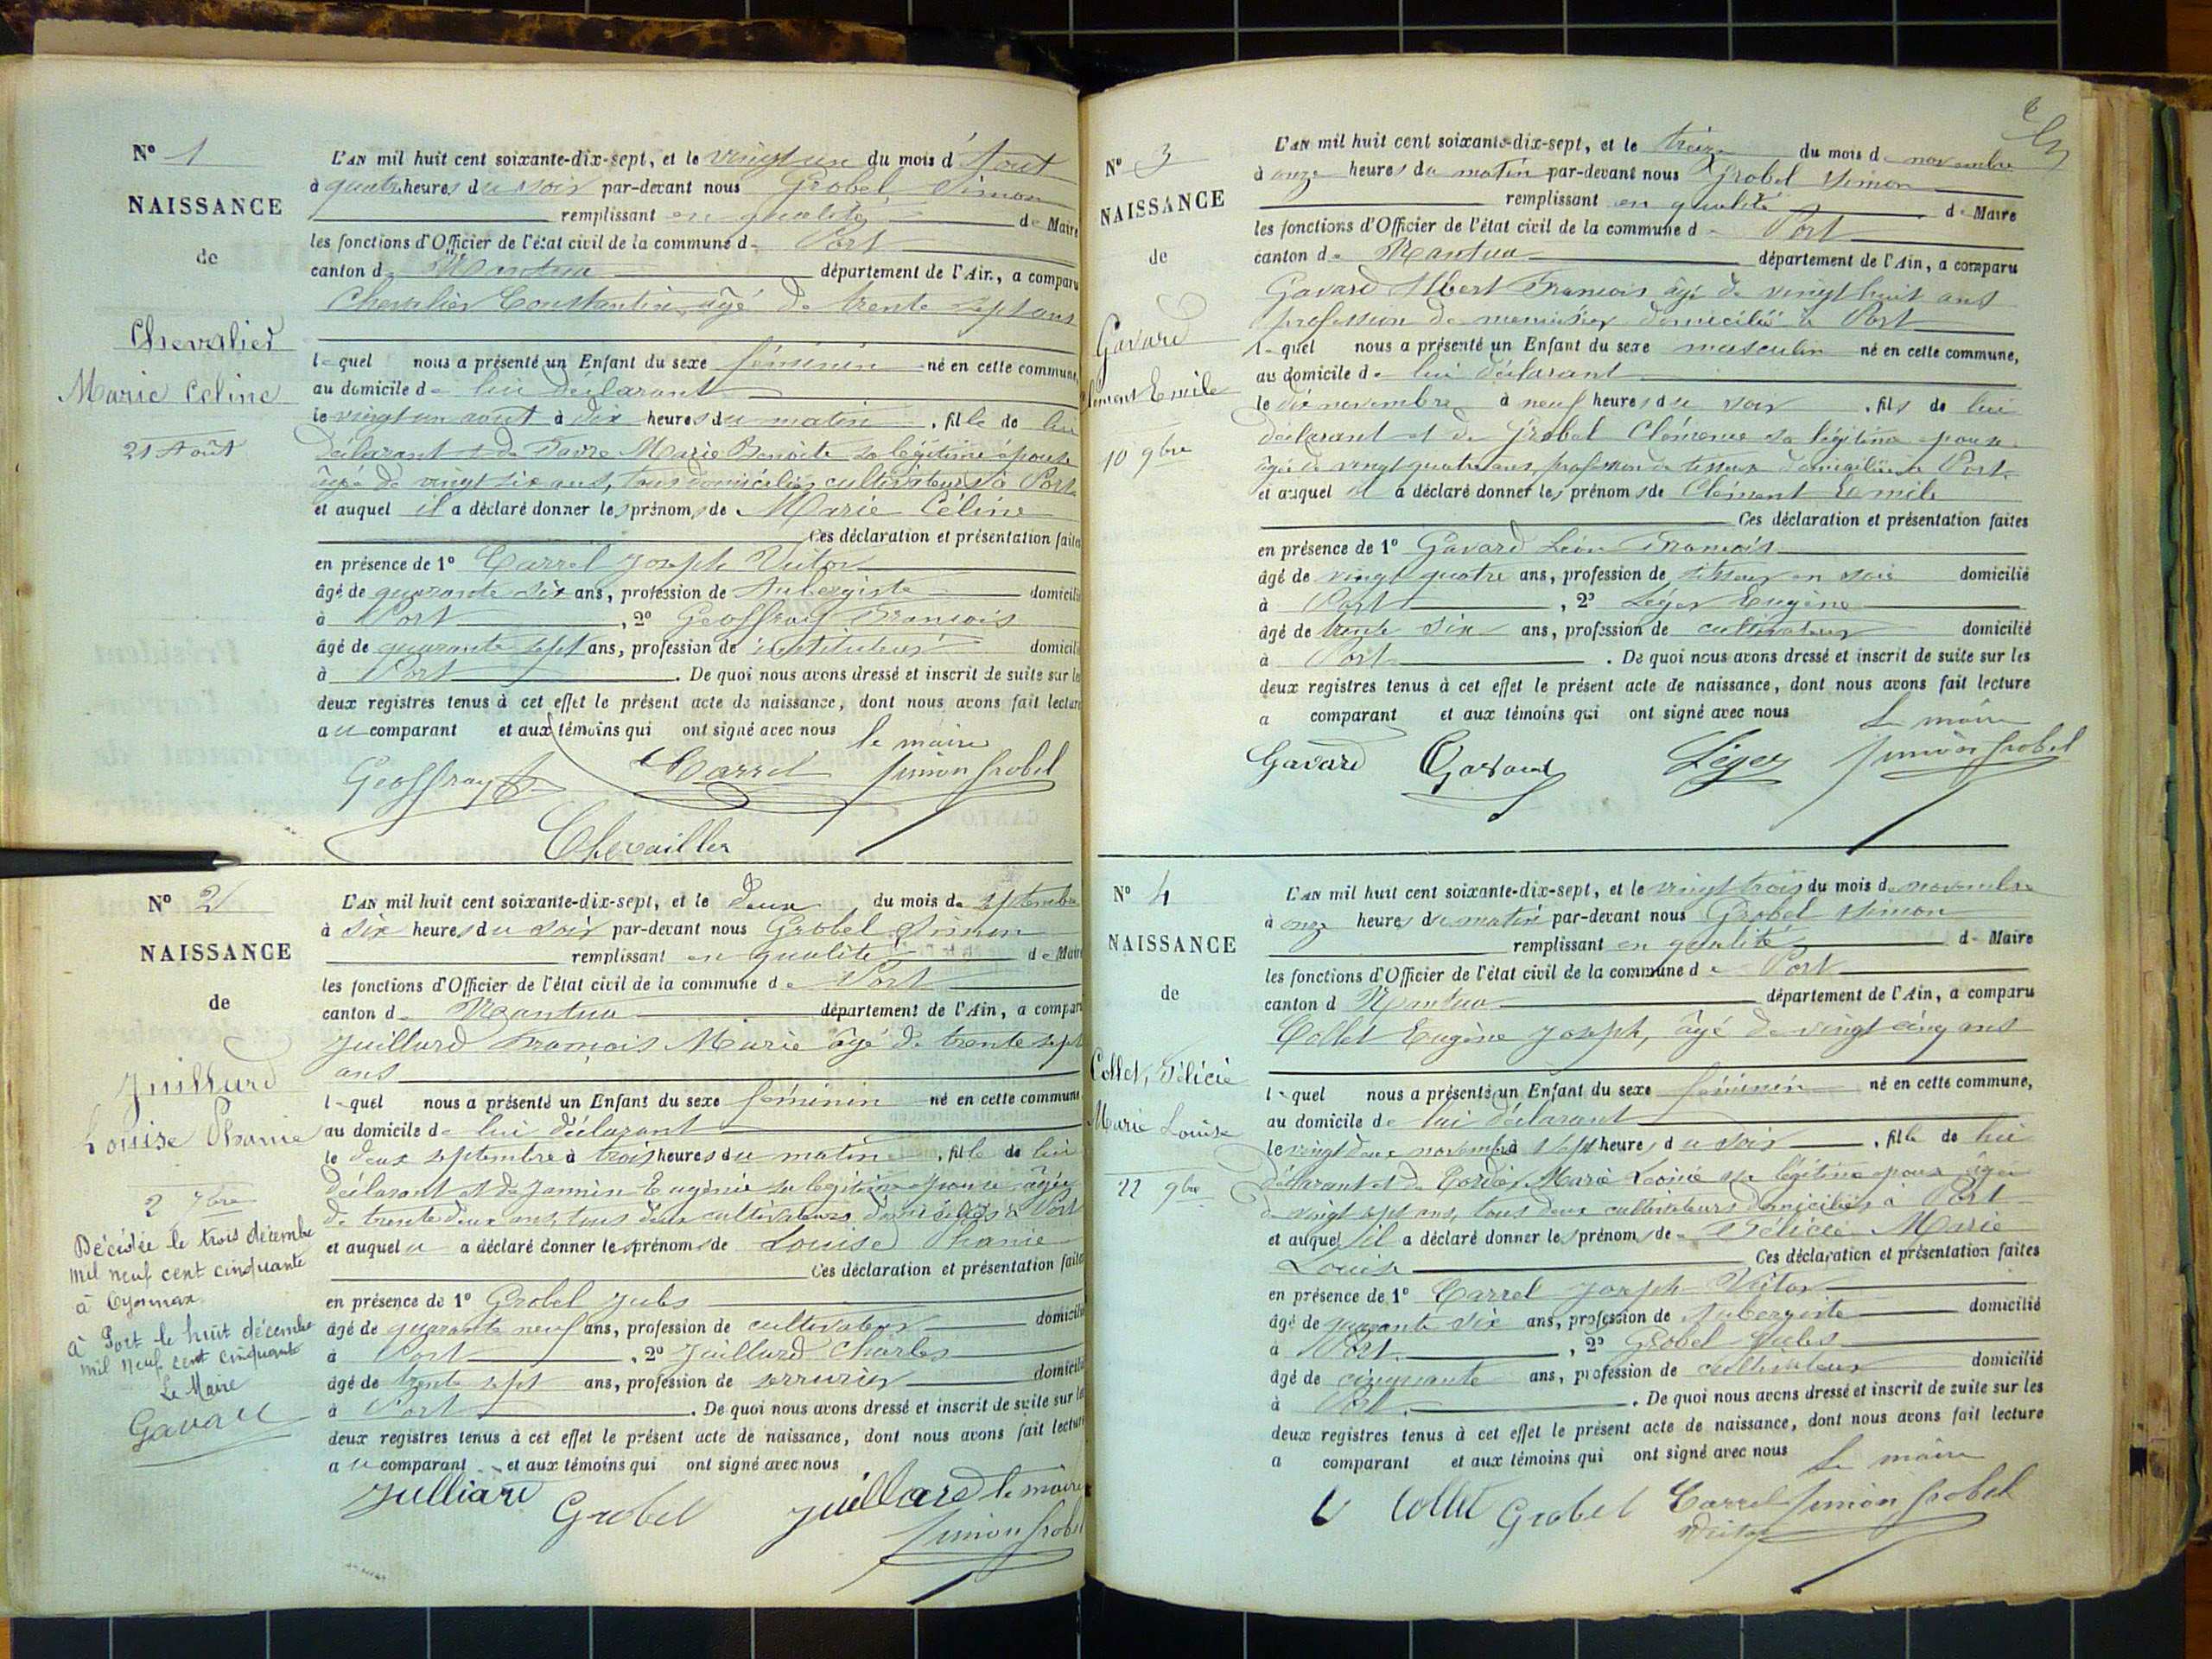 N° 1
NAISSANCE
de
Chevalier
Marie Celine
21 Août
L'AN mil huit cent soixante-dix-sept, et le vingt un du mois d'Aout
à quatre heures du soir par-devant nous Grobel Simon
remplissant en qualité de Maire
les fonctions d'Officier de l'état civil de la commune de Port
canton de Mantua département de l'Ain, a comparu
Chevalier Constantin, âgé de trente sept ans
lequel nous a présenté un Enfant du sexe féminin né en cette commune,
au domicile de lui déclarant
le vingt un août à dix heures du matin, fille de lui
déclarant & de Favre Marie Benoite sa légitime épouse
âgée de vingt six ans, tous domiciliés cultivateurs à Port
et auquel il a déclaré donner les prénoms de Marie Céline
Ces déclaration et présentation faites
en présence de 1° Carrel Joseph Victor
âgé de quarante six ans, profession de Aubergiste domicilié
à Port, 2° Geoffray François
âgé de quarante sept ans, profession de instituteur domicilié
à Port. De quoi nous avons dressé et inscrit de suite sur les
deux registres tenus à cet effet le présent acte de naissance, dont nous avons fait lecture
au comparant et aux témoins qui ont signé avec nous
le maire
Geoffray Carrel Simon Grobel
Chevailler
N° 2
NAISSANCE
de
Juillard
Louise Phanie
2 7bre
Décédée le trois décembre
mil neuf cent cinquante
à Oyonnax
à Port le huit décembre
mil neuf cent cinquante
Le Maire
Gavard
L'AN mil huit cent soixante-dix-sept, et le deux du mois de septembre
à six heures du soir par-devant nous Grobel Simon
remplissant en qualité de Maire
les fonctions d'Officier de l'état civil de la commune de Port
canton de Mantua département de l'Ain, a comparu
Juillard François Marie âgé de trente sept
ans
lequel nous a présenté un Enfant du sexe féminin né en cette commune
au domicile de lui déclarant
le deux septembre à trois heures du matin, fille de lui
déclarant et de Jannin Eugénie sa légitime épouse âgée
de trente deux ans, tous deux cultivateurs domiciliés à Port
et auquel a déclaré donner les prénoms de Louise Phanie
Ces déclaration et présentation faites
en présence de 1° Grobel Jules
âgé de quarante neuf ans, profession de cultivateur domicilié
à Port, 2° Juillard Charles
âgé de trente sept ans, profession de serrurier domicilié
à Port. De quoi nous avons dressé et inscrit de suite sur les
deux registres tenus à cet effet le présent acte de naissance, dont nous avons fait lecture
au comparant et aux témoins qui ont signé avec nous
Julliard Grobel Juillard le maire
Simon Grobel
N° 3
NAISSANCE
de
Gavard
Clément Emile
10 9bre
L'AN mil huit cent soixante-dix-sept, et le treize du mois de novembre
à onze heures du matin par-devant nous Grobel Simon
remplissant en qualité de Maire
les fonctions d'Officier de l'état civil de la commune de Port
canton de Mantua département de l'Ain, a comparu
Gavard Albert François âgé de vingt huit ans
profession de menuisier domicilié à Port
lequel nous a présenté un Enfant du sexe masculin né en cette commune,
au domicile de lui déclarant
le dix novembre à neuf heures du soir, fils de lui
déclarant et de Grobel Clémence sa légitime épouse
âgée de vingt quatre ans, profession de tisseuse domiciliée à Port.
et auquel il a déclaré donner les prénoms de Clément Emile
Ces déclaration et présentation faites
en présence de 1° Gavard Léon François
âgé de vingt quatre ans, profession de tisseur en soie domicilié
à Port, 2° Léger Eugène
âgé de trente six ans, profession de cultivateur domicilié
à Port. De quoi nous avons dressé et inscrit de suite sur les
deux registres tenus à cet effet le présent acte de naissance, dont nous avons fait lecture
a comparant et aux témoins qui ont signé avec nous
Le maire
Gavard Gavard Léger Simon Grobel
N° 4
NAISSANCE
de
Collet, Félicie
Marie Louise
22 9bre
L'AN mil huit cent soixante-dix-sept, et le vingt trois du mois de novembre
à onze heures du matin par-devant nous Grobel Simon
remplissant en qualité de Maire
les fonctions d'Officier de l'état civil de la commune de Port
canton d Mantua département de l'Ain, a comparu
Collet Eugène Joseph, âgé de vingt cinq ans
lequel nous a présenté un Enfant du sexe féminin né en cette commune,
au domicile de lui déclarant
le vingt deux novembre à sept heures du soir, fille de lui
déclarant et de Cordier Marie Léonie sa légitime épouse âgée
de vingt sept ans, tous deux cultivateurs domiciliés à Port
et auquel il a déclaré donner les prénoms de Félicie Marie
Louise Ces déclaration et présentation faites
en présence de 1° Carrel Joseph Victor
âgé de quarante six ans, profession de Aubergiste domicilié
à Port, 2° Grobel Jules
âgé de cinquante ans, profession de cultivateur domicilié
à Port. De quoi nous avons dressé et inscrit de suite sur les
deux registres tenus à cet effet le présent acte de naissance, dont nous avons fait lecture
a comparant et aux témoins qui ont signé avec nous
Le maire
Collet Grobel Carrel Simon Grobel
Victor